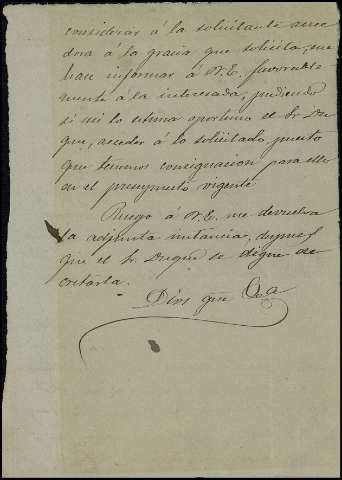 considerar á la solicitante acree
dora á la gracia que solicita, me
hace informar á V.E. favorable
mente á la interesada, pudiendo
si asi lo estima oportuno el Sr Du
que, acceder á lo solicitado, puesto
que tenemos consignacion para ello
en el presupuesto vigente
Ruego á V.E. me devuelva
la adjunta instancia, despues
que el Sr Duque se digne de
cretarla.
Dios gue